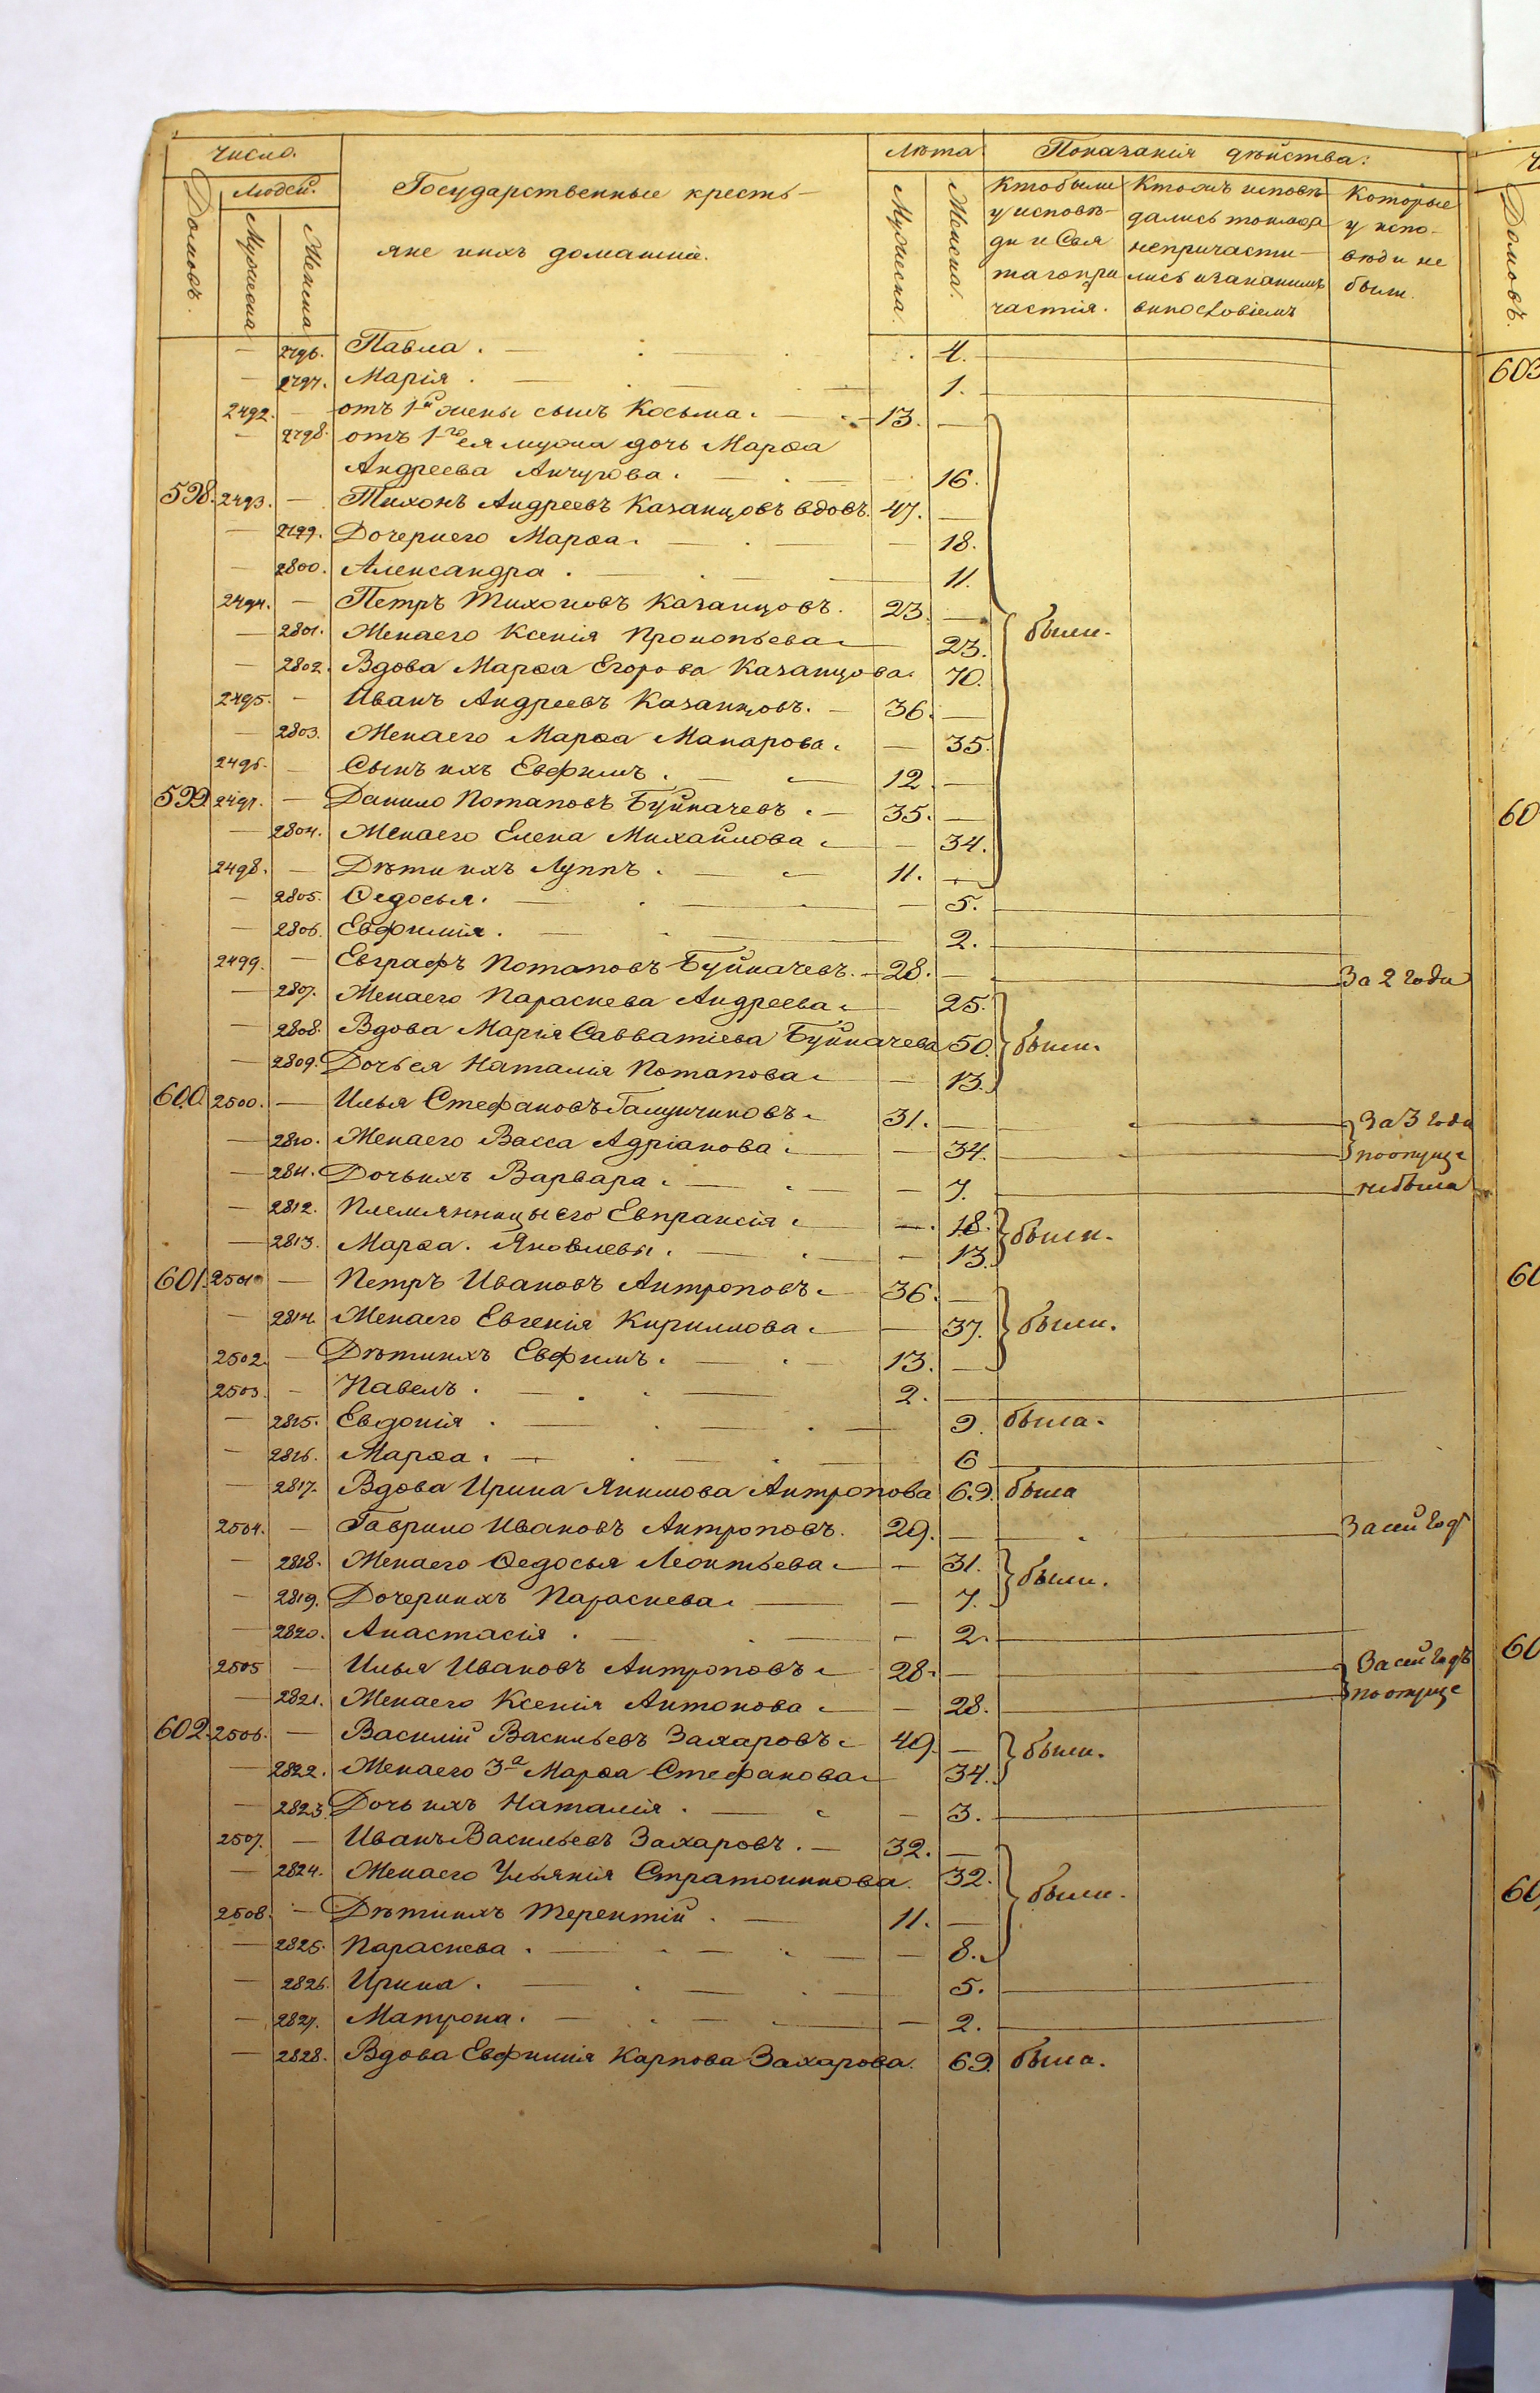 Число.
Людей.
Домовъ.
Мужеска
Женска
Государственные кресть-
яне ихъ домашніе.
Лѣта
Мужеска.
Женска.
Показанія дѣйства:
Кто были
у исповѣ-
ди и Свя
таго при
частія.
Кто жъ исповѣ
дались токмо а
непричасти-
лись и за какимъ
винословіемъ
Которые
у испо-
вѣди не
были.
— 2796. Павла. — 4. —
— 2797. Марія. — 1. —
2492. — отъ 1й жены сынъ Косьма. — 13. —
— 2798. отъ 1го ея мужа дочь Марѳа
Андреева Анчугова. — 16.
598. 2493. — Тихонъ Андреевъ Казанцовъ вдовъ. 47. —
— 2799. Дочери его Марѳа. — 18.
— 2800. Александра. — 11.
2494. — Петръ Тихоновъ Казанцовъ. 23. — были.
— 2801. Жена его Ксенія Прокопьева — 23.
— 2802. Вдова Марѳа Егорова Казанцова. 70.
2495. — Иванъ Андреевъ Казанцовъ. — 36. —
— 2803. Жена его Марѳа Макарова. — 35.
2496. — Сынъ ихъ Евфимъ. — 12 —
599 2497. — Данило Потаповъ Буйначевъ. — 35. —
— 2804. Жена его Елена Михайлова — 34.
2498. — Дѣти ихъ Луппъ. — 11. —
— 2805. Ѳедосья. — 5. —
— 2806. Евфимія. — 2. —
2499. — Евграфъ Потаповъ Буйначевъ. — 28. — За 2 года
— 2807. Жена его Параскева Андреева — 25.
— 2808. Вдова Марія Савватіева Буйначева 50. были.
— 2809. Дочь ея Наталія Потапова — 13.
600. 2500. — Илья Стефановъ Галунчиковъ 31. — За 3 года
— 2810. Жена его Васса Адріанова — 34. — по опуще
— 2811. Дочь ихъ Варвара. — 7. — не была
— 2812. Племянницы его Евпраксія. — 18. были.
— 2813. Марѳа. Яковлевы. — 13.
601. 2501 — Петръ Ивановъ Антроповъ — 36. —
— 2814. Жена его Евгенія Кириллова. — 37. были.
2502. — Дѣти ихъ Евфимъ. — 13. —
2503. — Павелъ. — 2. —
— 2815. Евдокія. — 9. была.
— 2816. Марѳа. — 6 —
— 2817. Вдова Ирина Якимова Антропова 69. была
2504. — Гаврило Ивановъ Антроповъ. 29. — За сей годъ
— 2818. Жена его Ѳедосья Леонтьева — 31. были.
— 2819. Дочери ихъ Параскева. — 7.
— 2820. Анастасія. — 2. —
2505 — Илья Ивановъ Антроповъ — 28. — За сей годъ
— 2821. Жена его Ксенія Антонова — 28. — по опуще
602. 2506. — Василій Васильевъ Захаровъ. 49. — были.
— 2822. Жена его 3я Марѳа Стефанова 34.
— 2823. Дочь ихъ Наталія. — 3. —
2507. — Иванъ Васильевъ Захаровъ. — 32. —
— 2824. Жена его Ульянія Стратоникова. 32. были.
2508. — Дѣти ихъ Терентій. — 11. —
— 2825. Параскева. — 8.
— 2826. Ирина. — 5. —
— 2827. Матрона. — 2. —
— 2828. Вдова Евфимія Карпова Захарова. 69. была.
Домовъ.
603
60
60
60
60